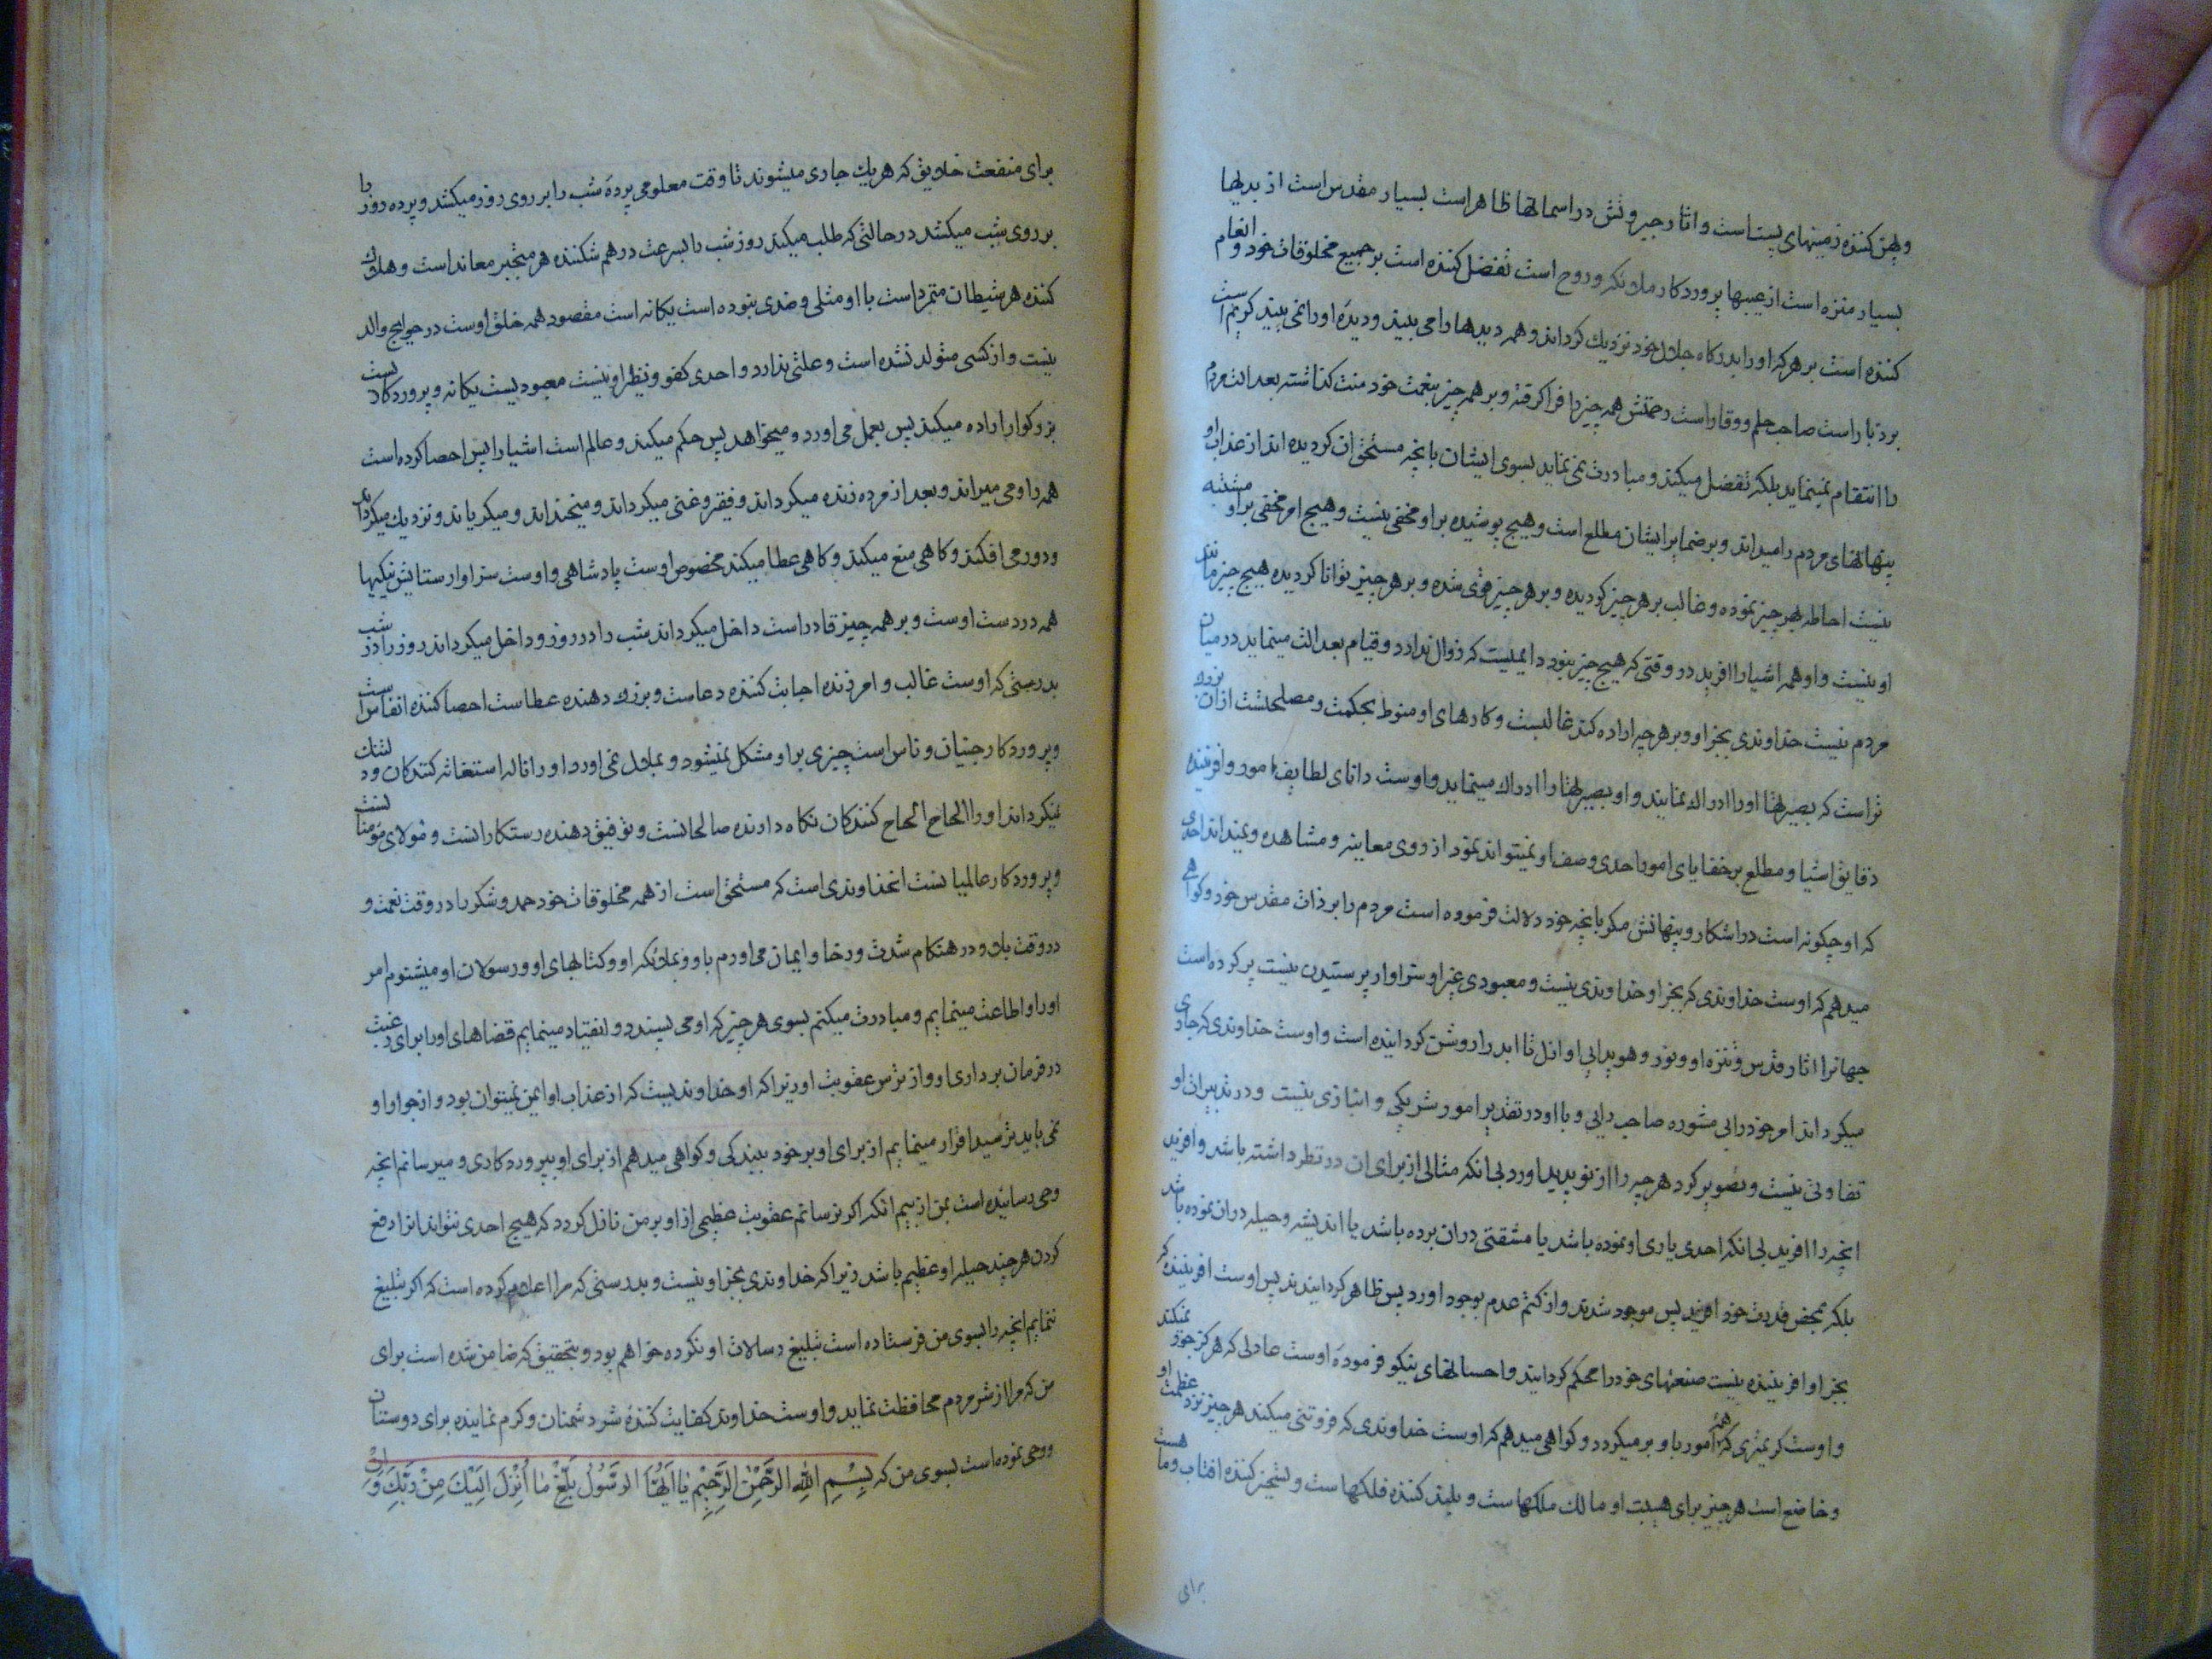 و پهن کننده زمینهای پست است و اثار جبروتش در اسمانها ظاهر است بسیار مقدس است از بدیها
بسیار منزه است از عیبها پروردکار ملائکه و روح است تفضل کننده است بر جمیع مخلوقات خود و انعام
کننده است بر هر که او را بدرکاه جلال خود نزدیك کرداند و همه دیدها را می بیند و دیدهٔ او را نمی بیند کریم است
بردبار است صاحب حلم و وقار است رحمتش همه چیز را فرا کرفته و بر همه چیز بنعمت خود منت کذاشته بعدالت مردم
را انتقام نمینماید بلکه تفضل میکند و مبادرت نمی نماید بسوی ایشان بانچه مستحق ان کردیده اند از عذاب او
پنهانهای مردم را میداند و بر ضمایر ایشان مطلع است و هیچ پوشیده بر او مخفی نیست و هیچ امر مخفی بر او مشتبه
نیست احاطه بهر چیز نموده و غالب بر هر چیز کردیده و بر هر چیز قوی شده و بر هر چیز توانا کردیده هیچ چیز مانند
او نیست و او همه اشیا را افرید در وقتی که هیچ چیز نبود دایمیست که زوال ندارد و قیام بعدالت مینماید در میان
مردم نیست خداوندی بجز او و بر هر چه اراده کند غالبست و کارهای او منوط بحکمت و مصلحتست از ان بزرك
تر است که بصیرتها او را ادراك نمایند و او بصیرتها را ادراك مینماید و اوست دانای لطایف امور و افریننده
دقایق اشیا و مطلع بر خفایای امور احدی وصف او نمیتواند نمود از روی معاینه و مشاهده و نمیداند احدی
که او چکونه است در اشکار و پنهانش مکر بانچه خود دلالت فرموده است مردم را بر ذات مقدس خود و کواهی
میدهم که اوست خداوندی که بجز او خداوندی نیست و معبودی غیر او سزاوار پرستیدن نیست پر کرده است
جهانرا اثار قدس و تنزه او و نور و هویدایی او ازل تا ابد را روشن کردانیده است و اوست خداوندی که جاری
میکرداند امر خود را بی مشوره صاحب رایی و با او در تقدیر امور شریکی و انبازی نیست و در تدبیرات او
تفاوتی نیست و تصویر کرد هر چه را از نو پدید اورد بی انکه مثالی از برای ان در نظر داشته باشد و افرید
انچه را افرید بی انکه احدی یاری او نموده باشد یا مشقتی در ان برده باشد یا اندیشه و حیله در ان نموده باشد
بلکه بمحض قدرت خود افرید پس موجود شدند و از کتم عدم بوجود اورد پس ظاهر کردانیدند پس اوست افریننده که
بجز او افریننده نیست صنعتهای خود را محکم کردانیده و احسانهای نیکو فرموده اوست عادلی که هرکز جور نمیکند
و اوست کریمتری که همه امور باو بر میکردد و کواهی میدهم که اوست خداوندی که فروتنی میکند هر چیز نزد عظمت او
و خاضع است هر چیز برای هیبت او مالك ملکهاست و بلند کننده فلکهاست و تسخیر کننده افتاب و ماه هست
برای
برای منفعت خلایق که هر یك جاری میشوند تا وقت معلومی پردهٔ شب را بر روی روز میکشد و پرده روز را
بر روی شب میکشد در حالتی که طلب میکند روز شب را بسرعت درهم شکننده هر متجبر معاند است و هلاك
کننده هر شیطان متمرد است با او مثلی و ضدی نبوده است یکانه است مقصود همه خلق اوست در حوایج والد
نیست و از کسی متولد نشده است و علتی ندارد و احدی کفو و نظیر او نیست معبودیست یکانه و پروردکاریست
بزرکوار اراده میکند پس بعمل می اورد و میخواهد پس حکم میکند و عالم است اشیا را پس احصا کرده است
همه را و می میراند و بعد از مردن زنده میکرداند و فقیر و غنی میکرداند و میخنداند و میکریاند و نزدیك میکرداند
و دور می افکند و کاهی منع میکند و کاهی عطا میکند مخصوص اوست پادشاهی و اوست سزاوار ستایش نیکیها
همه در دست اوست و بر همه چیز قادر است داخل میکرداند شب را در روز و داخل میکرداند روز را در شب
بدرستی که اوست غالب و امرزنده اجابت کننده دعاست و بزرك دهنده عطاست احصا کننده انفاس است
و پروردکار جنیان و ناس است چیزی بر او مشکل نمیشود و بملال نمی اورد او را ناله استغاثه کنندکان و دلتنك
نمیکرداند او را الحاح الحاح کنندکان نکاه دارنده صالحانست و توفیق دهنده رستکارانست و مولای مومنانست
و پروردکار عالمیانست انخداوندی است که مستحق است از همه مخلوقات خود حمد و شکر را در وقت نعمت و
در وقت بلا و در هنکام شدت و رخا و ایمان می اورم باو و بملائکه او و کتابهای او و رسولان او میشنوم امر
او را و اطاعت مینمایم و مبادرت میکنم بسوی هر چیز که او می پسندد و انقیاد مینمایم قضاهای او را برای رغبت
در فرمان برداری او و از ترس عقوبت او زیرا که او خداوندیست که از عذاب او ایمن نمیتوان بود و از جور او
نمی باید ترسید اقرار مینمایم از برای او بر خود ببندکی و کواهی میدهم از برای او بپروردکاری و میرسانم انچه
وحی رسانیده است بمن از بیم انکه اکر نرسانم عقوبت عظیمی از او بر من نازل کردد که هیچ احدی نتواند انرا دفع
کردن هر چند حیله او عظیم باشد زیرا که خداوندی بجز او نیست و بدرستی که مرا اعلام کرده است که اکر تبلیغ
ننمایم انچه را بسوی من فرستاده است تبلیغ رسالات او نکرده خواهم بود و بتحقیق که ضامن شده است برای
من که مرا از شر مردم محافظت نماید و اوست خداوند کفایت کننده شر دشمنان و کرم نماینده برای دوستان
و وحی نموده است بسوی من که بِسْمِ اللهِ الرَّحْمٰنِ الرَّحِیْمِ یٰا اَیُّهَا الرَّسُوْلُ بَلِّغْ مٰا اُنْزِلَ اِلَیْكَ مِنْ رَبِّكَ وَ اِنْ